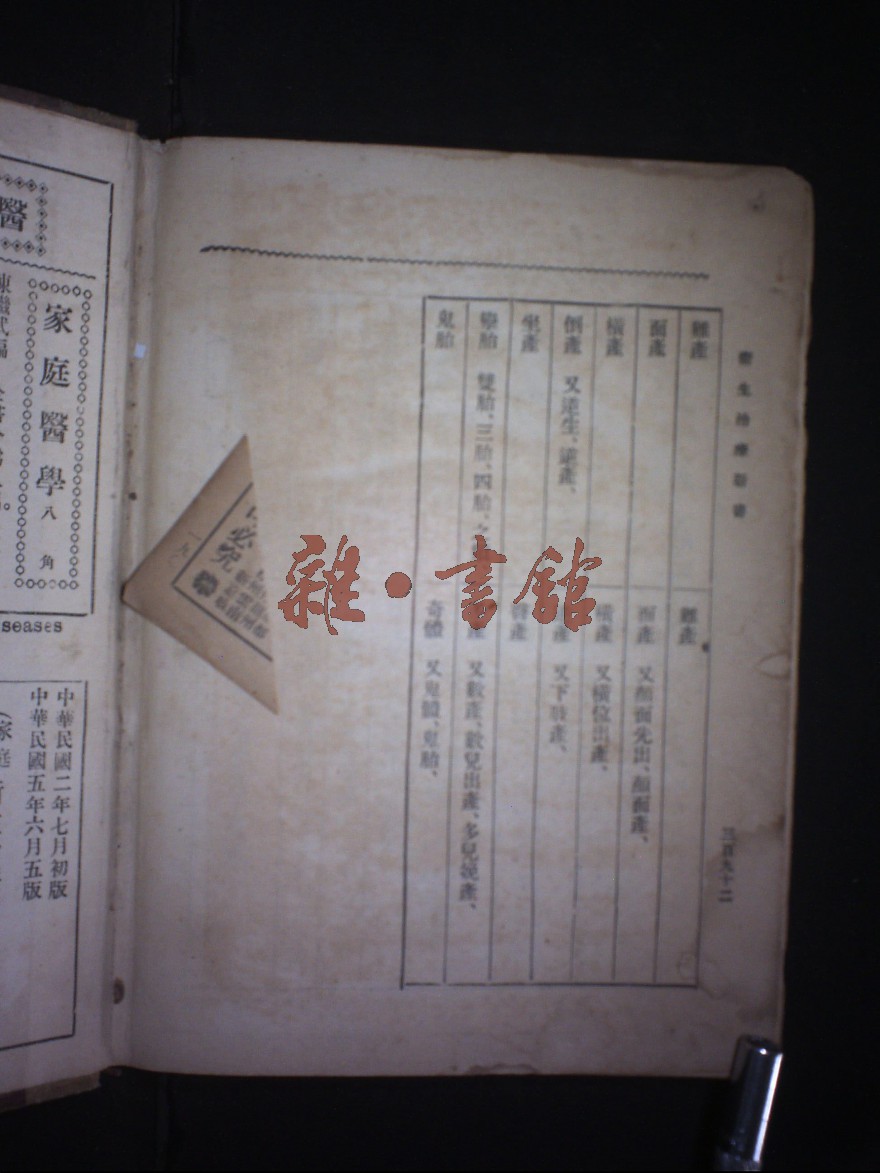 衞生治療新書
難產
難產
面產
面產 又顏面先出、顏面產、
橫產
橫產 又橫位出產、
倒產 又逆生、逆產、
產 又下肢產、
坐產
臀產
孿胎 雙胎、三胎、四胎、之
產 又數產、數兒出產、多兒娩產、
鬼胎
奇體 又鬼體、鬼胎、
三百九十二
雜·書館
必究
一九
醫
家庭醫學 八角
seases
中華民國二年七月初版
中華民國五年六月五版